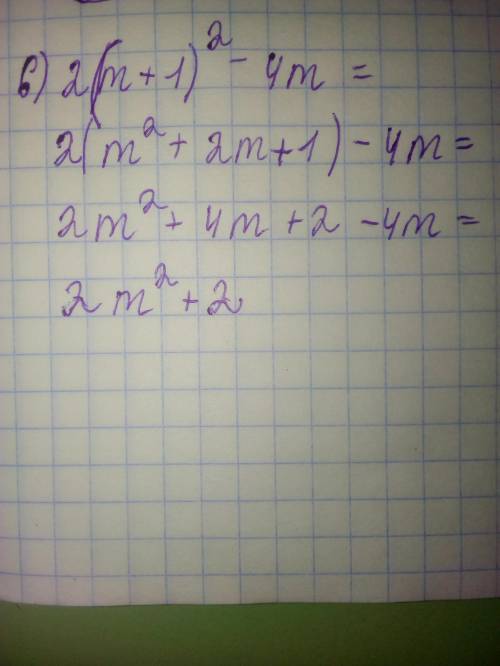 б) 2(m + 1)² - 4m =
2(m² + 2m + 1) - 4m =
2m² + 4m + 2 - 4m =
2m² + 2